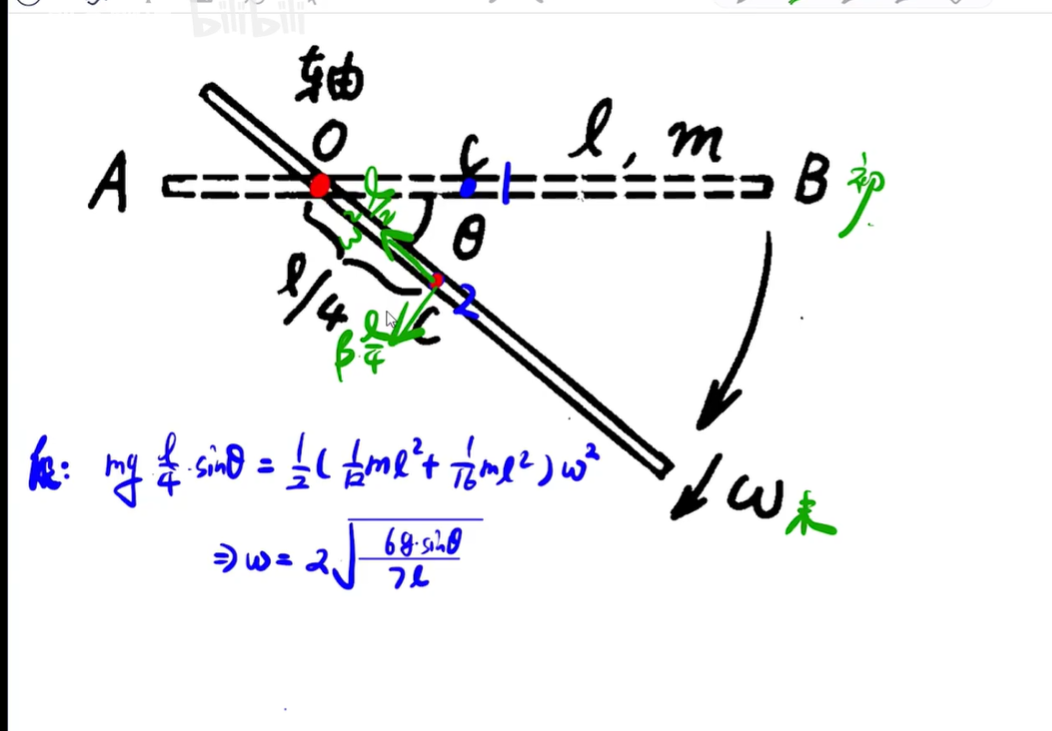 bilibili
轴
O
A
C
1
l, m
B
初
θ
l/4
C
2
β l/4
ω末
解: mg l/4 · sinθ = 1/2 ( 1/12 ml² + 1/16 ml² ) ω²
⇒ ω = 2√(6g·sinθ / 7l)